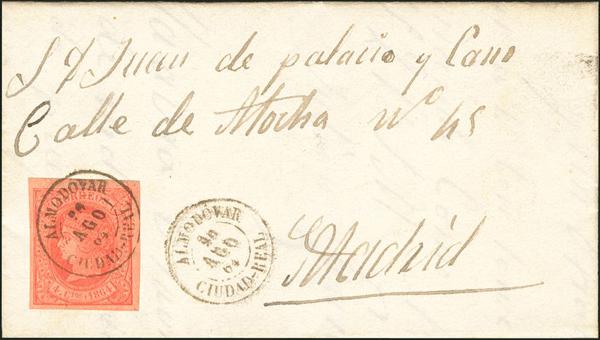 S D Juan de palacio y Cano
Calle de Atocha nº 45
Madrid
ALMODOVAR
AGO
64
CIUDAD-REAL
ALMODOVAR
AGO
64
CIUDAD-REAL
CORREOS
4 Ctos 1864